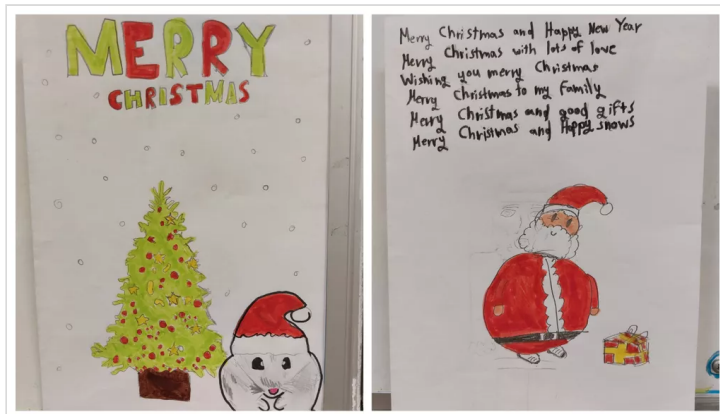 MERRY
CHRISTMAS
Merry Christmas and Happy New Year
Merry Christmas with lots of love
Wishing you merry Christmas
Merry Christmas to my Family
Merry Christmas and good gifts
Merry Christmas and Happy snows